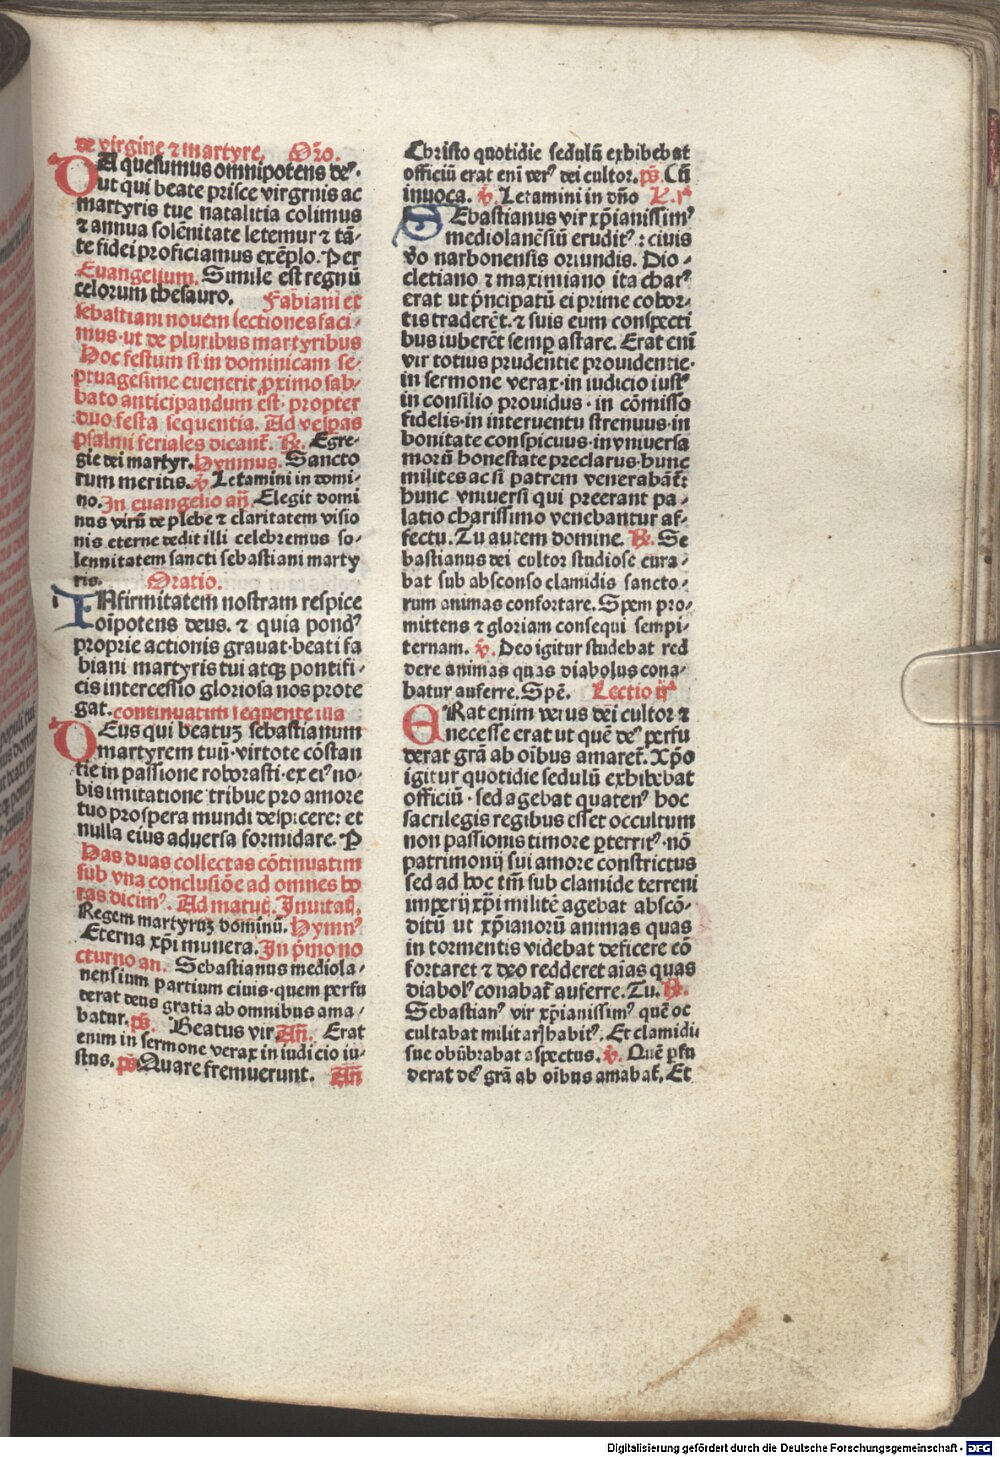 de virgine ⁊ martyre. Or̃o.
DA quesumus omnipotens deꝰ·
ut qui beate prisce virgrnis ac
martyris tue natalitia colimus
⁊ annua solẽnitate letemur ⁊ tã⸗
te fidei proficiamus exẽplo. Per
Euangelium. Simile est regnũ
celorum thesauro. Fabiani et
sebastiani nouem lectiones faci⸗
mus·ut de pluribus martyribus
Hoc festum si in dominicam se⸗
ptuagesime euenerit ꝓximo sab⸗
bato anticipandum est· propter
duo festa sequentia. Ad vesp̃as
psalmi feriales dicant᷑. ℟. Egre⸗
gie dei martyr. Hymnus. Sancto
rum meritis. ℣ Letamini in domi⸗
no. In euangelio añ. Elegit domi
nus virũ de plebe ⁊ claritatem visio
nis eterne dedit illi celebremus so⸗
lennitatem sancti sebastiani marty
ris. Oratio.
INfirmitatem nostram respice
oĩpotens deus. ⁊ quia pondꝰ
proprie actionis grauat·beati fa
biani martyris tui atqꝫ pontifi⸗
cis intercessio gloriosa nos prote
gat. continuatim sequente illa
DEus qui beatuꝫ sebastianum
martyrem tuũ·virtote cõstan
tie in passione roborasti·ex eiꝰ no⸗
bis imitatione tribue pro amore
tuo prospera mundi despicere: et
nulla eius aduersa formidare. P
Has duas collectas cõtinuatim
sub vna conclusiõe ad omnes ho
ras dicimꝰ. Ad matut̃. Inuitat̃.
Regem martyruꝫ dominũ. Hymnꝰ
Eterna xp̃i munera. In p̃mo no
cturno an. Sebastianus mediola⸗
nensium partium ciuis·quem perfu
derat deus gratia ab omnibus ama⸗
batur. p̃s. Beatus vir. Añ. Erat
enim in sermone verax in iudicio iu⸗
stus. p̃s Quare fremuerunt. Añ
Christo quotidie sedulũ exhibebat
officiũ erat eni verꝰ dei cultor. p̃s. Cũ
inuoca. ℣. Letamini in dño L. iᵃ
SEbastianus vir xp̃ianissimꝰ
mediolanẽsiũ eruditꝰ: ciuis
v̾o narbonensis oriundis. Dio⸗
cletiano ⁊ maximiano ita charꝰ
erat ut p̃ncipatũ ei prime cohor⸗
tis traderẽt. ⁊ suis eum conspecti
bus iuberẽt semp astare. Erat eni
vir totius prudentie prouidentie·
in sermone verax·in iudicio iustꝰ
in consilio prouidus · in cõmisso
fidelis·in interuentu strenuus·in
bonitate conspicuus·in vniuersa
morũ honestate preclarus·hunc
milites ac si patrem venerabãt᷑:
hunc vniuersi qui preerant pa⸗
latio charissimo venebantur af⸗
fectu. Tu autem domine. ℟. Se
bastianus dei cultor studiose cura⸗
bat sub absconso clamidis sancto⸗
rum animas confortare. Spem pro⸗
mittens ⁊ gloriam consequi sempi⸗
ternam. ℣. Deo igitur studebat red
dere animas quas diabolus cona⸗
batur auferre. Spẽ. Lectio ijᵃ
ERat enim verus dei cultor ⁊
necesse erat ut quẽ deꝰ perfu
derat gr̃a ab oĩbus amaret᷑. Xp̃o
igitur quotidie sedulũ exhibebat
officiũ · sed agebat quatenꝰ hoc
sacrilegis regibus esset occultum
non passionis timore ꝑterritꝰ·nõ
patrimonij sui amore constrictus
sed ad hoc tm̃ sub clamide terreni
imperij xp̃i militẽ agebat abscõ⸗
ditũ ut xp̃ianorũ animas quas
in tormentis videbat deficere cõ
fortaret ⁊ deo redderet aĩas quas
diabolꝰ conabat᷑ auferre. Tu. ℟.
Sebastianꝰ vir xp̃ianissimꝰ quẽ oc
cultabat militarꝭ habitꝰ. Et clamidis
sue obũbrabat aspectus. ℣. Quẽ ꝑfu
derat deꝰ gr̃a ab oĩbus amabat᷑. Et
Digitalisierung gefördert durch die Deutsche Forschungsgemeinschaft - DFG